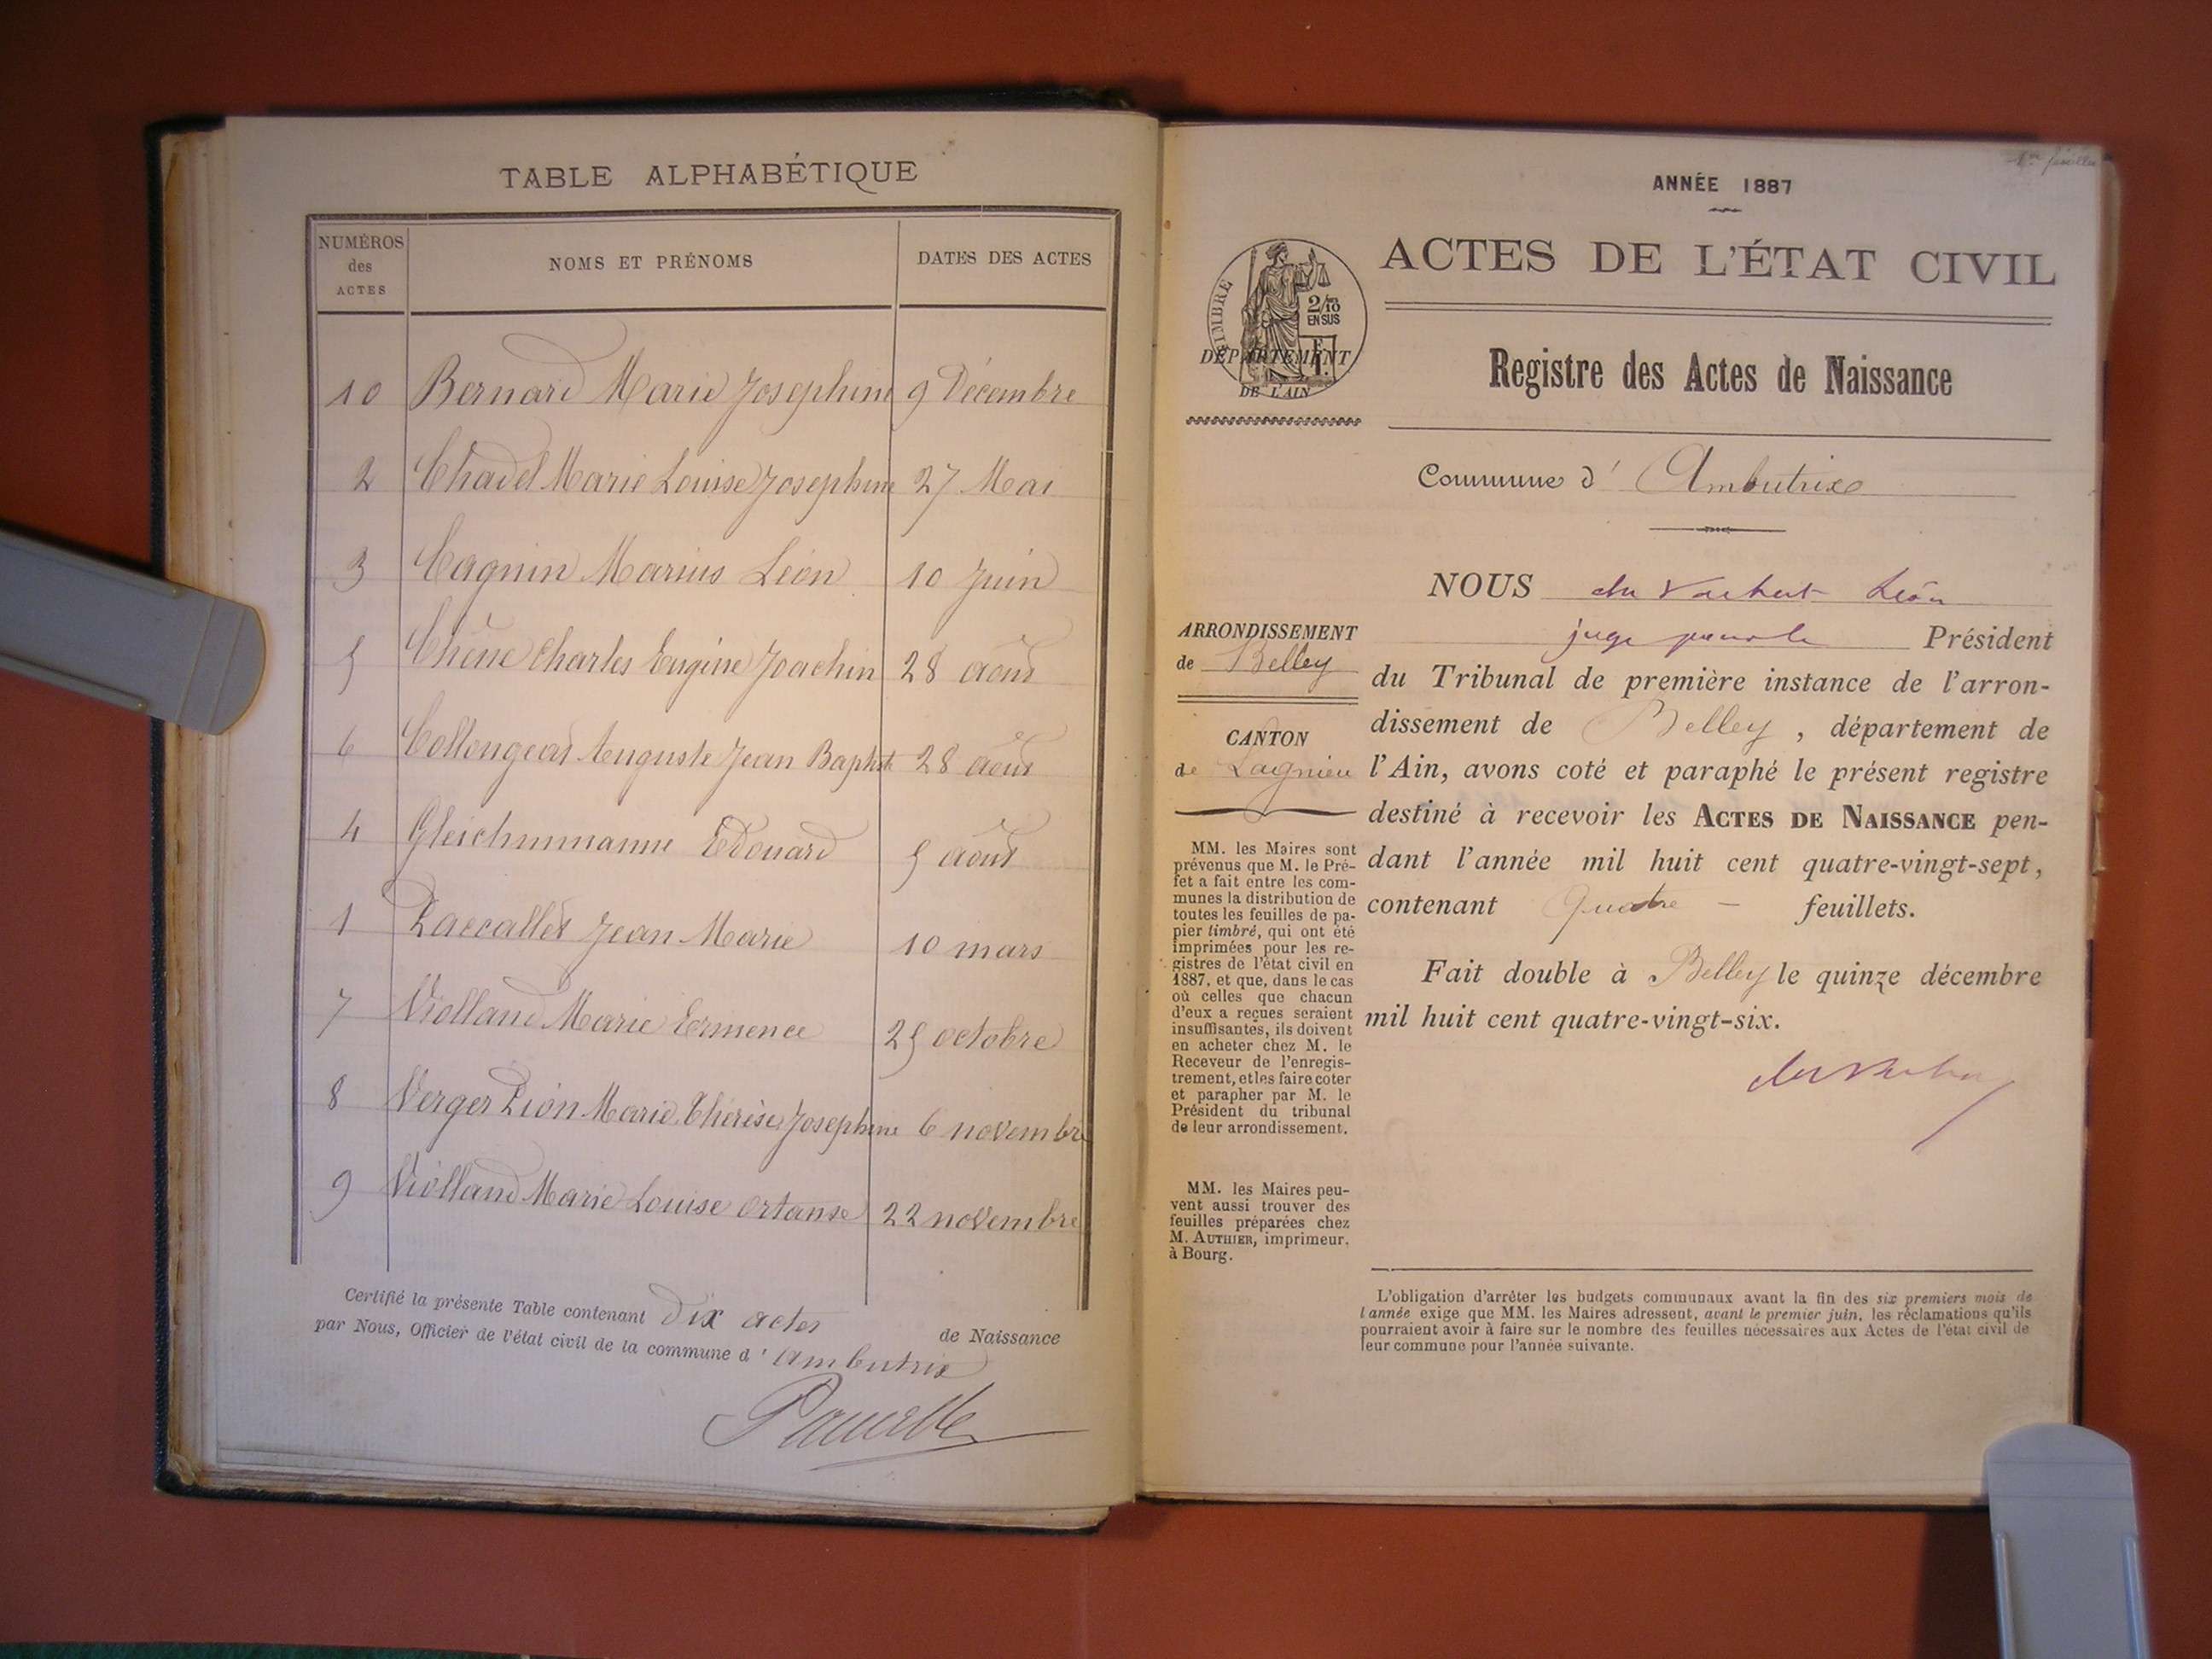 TABLE ALPHABÉTIQUE
NUMÉROS des ACTES NOMS ET PRÉNOMS DATES DES ACTES
10 Bernard Marie Josephine 9 Décembre
2 Chadel Marie Louise Josephine 27 Mai
3 Cagnin Marius Léon 10 Juin
5 Chêne Charles Eugène Joachin 28 aout
6 Collongeat Auguste Jean Baptiste 28 aout
4 Gleichmmann Edouard 5 aout
1 Laccallet Jean Marie 10 mars
7 Violland Marie Ermence 25 octobre
8 Verger Lion Marie Thérèse Josephine 6 novembre
9 Violland Marie Louise Ortanse 22 novembre
Certifié la présente Table contenant Dix actes de Naissance
par Nous, Officier de l'état civil de la commune d' Ambutrix
ANNÉE 1887
ACTES DE L'ÉTAT CIVIL
TIMBRE
2/10 EN SUS
DÉPARTEMENT
DE L'AIN
Registre des Actes de Naissance
Commune d' Ambutrix
ARRONDISSEMENT
de Belley
CANTON
de Lagnieu
MM. les Maires sont
prévenus que M. le Pré-
fet a fait entre les com-
munes la distribution de
toutes les feuilles de pa-
pier timbré, qui ont été
imprimées pour les re-
gistres de l'état civil en
1887, et que, dans le cas
où celles que chacun
d'eux a reçues seraient
insuffisantes, ils doivent
en acheter chez M. le
Receveur de l'enregis-
trement, et les faire coter
et parapher par M. le
Président du tribunal
de leur arrondissement.
MM. les Maires peu-
vent aussi trouver des
feuilles préparées chez
M. AUTHIER, imprimeur,
à Bourg.
NOUS Léon
juge Président
du Tribunal de première instance de l'arron-
dissement de Belley, département de
l'Ain, avons coté et paraphé le présent registre
destiné à recevoir les ACTES DE NAISSANCE pen-
dant l'année mil huit cent quatre-vingt-sept,
contenant Quatre – feuillets.
Fait double à Belley le quinze décembre
mil huit cent quatre-vingt-six.
L'obligation d'arrêter les budgets communaux avant la fin des six premiers mois de
l'année exige que MM. les Maires adressent, avant le premier juin, les réclamations qu'ils
pourraient avoir à faire sur le nombre des feuilles nécessaires aux Actes de l'état civil de
leur commune pour l'année suivante.